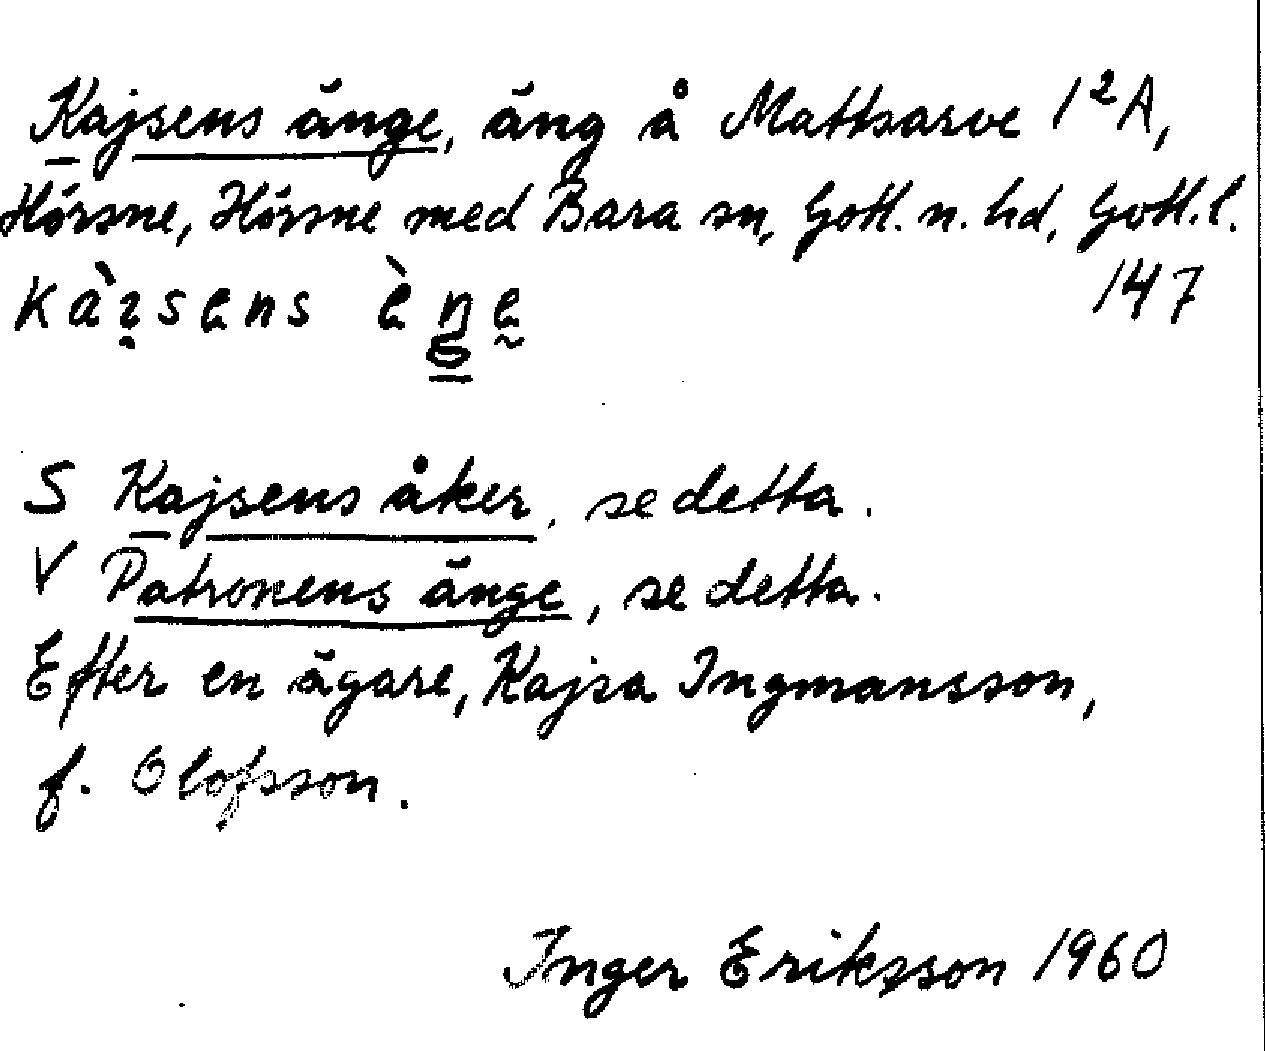 Kajsens änge, äng å Mattsarve 1²A,
Hörsne, Hörsne med Bara sn, Gotl. n. hd, Gotl. l.
kàisens ène 147
S Kajsens åker, se detta.
V Patronens änge, se detta.
Efter en ägare, Kajsa Ingmansson,
f. Olofsson.
Inger Eriksson 1960